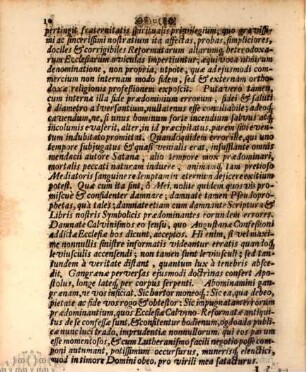 10
pertingit, fraternitatis spiritualis privilegium, quo gravissimi
ac sincerissimi nostratium ita affectas, probas, simpliciores,
dociles & corrigibiles Reformatarum aliarumq; heterodoxarum
Ecclesiarum oviculas impertiuntur, æquivoca nimirum
denominatione, non propria, utpote, quæ ad ejusmodi commercium
non internam modo fidem, sed & externam orthodoxæ
religionis professionem exposcit. Puta vero tamen,
cum interna illa fide prædominium errorum, fidei & saluti
è diametro adversantium, nullatenus esse conciliabile; adeoq;
cavendum, ne, si unus hominum forte incendium salvus aut
incolumis evaserit, alter, in id præcipitatus, parem inde
eventum indubitato promittat. Quandoquidem error ille, qui uno
tempore subjugatus & quasi venialis erat, insufflante omnis
mendacii autore Satana, alio tempore mox prædominari,
mortalis peccati naturam induere, animam, tam pretioso
Mediatoris sanguine redemptam in æternum dejicere exitium
potest. Quæ cum ita sint, ô Mei, nolite quidem quosvis promiscue
& confidenter damnare; damnate tamen Pseudoprophetas,
quâ tales; damnate etiam cum damnante Scriptura &
Libris nostris Symbolicis prædominantes eorundem errores.
Damnate Calvinismos eo sensu, quo Augustana Confessioni
addictæ Ecclesiæ hos dicunt, accepto;
nonnullis sinistre informatis videantur erratis quandoq;
leviusculis accensendi; non tamen sint leviusculi; sed tantundem
à veritate distant, quantum lux à tenebris abstedit.
Gangrænæ perversas ejusmodi doctrinas confert Apostolus,
longe lateq; per corpus serpenti. Abominamini
nam, ne vos inficiat. Sic hortor monroq;: Sic ea, quæ debeo,
pietate ac fide vos rogo & obtestor:
prædominantium, quos Ecclesiæ Calvino-Reformatæ
de se confessæ sunt, & constituent
nunculi trado, imprudentiæ nonnullorum, qui eos parum
esse momentosos, & cum Lutheranismo facili negotio posse componi
autumant, potissimum occursurus, muneris, electici,
quod in timore Domini obeo, pro virili mea satacturus.